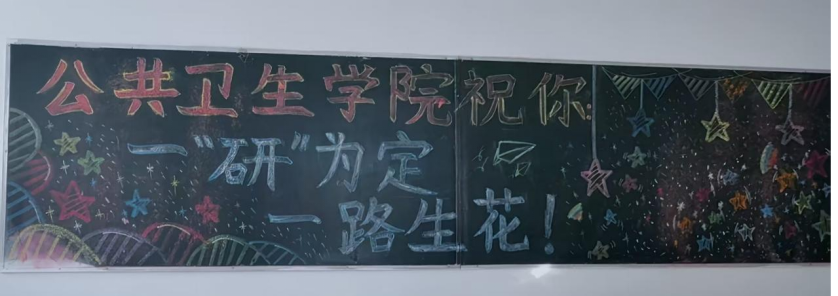 公共卫生学院祝你:
一“研”为定
一路生花!